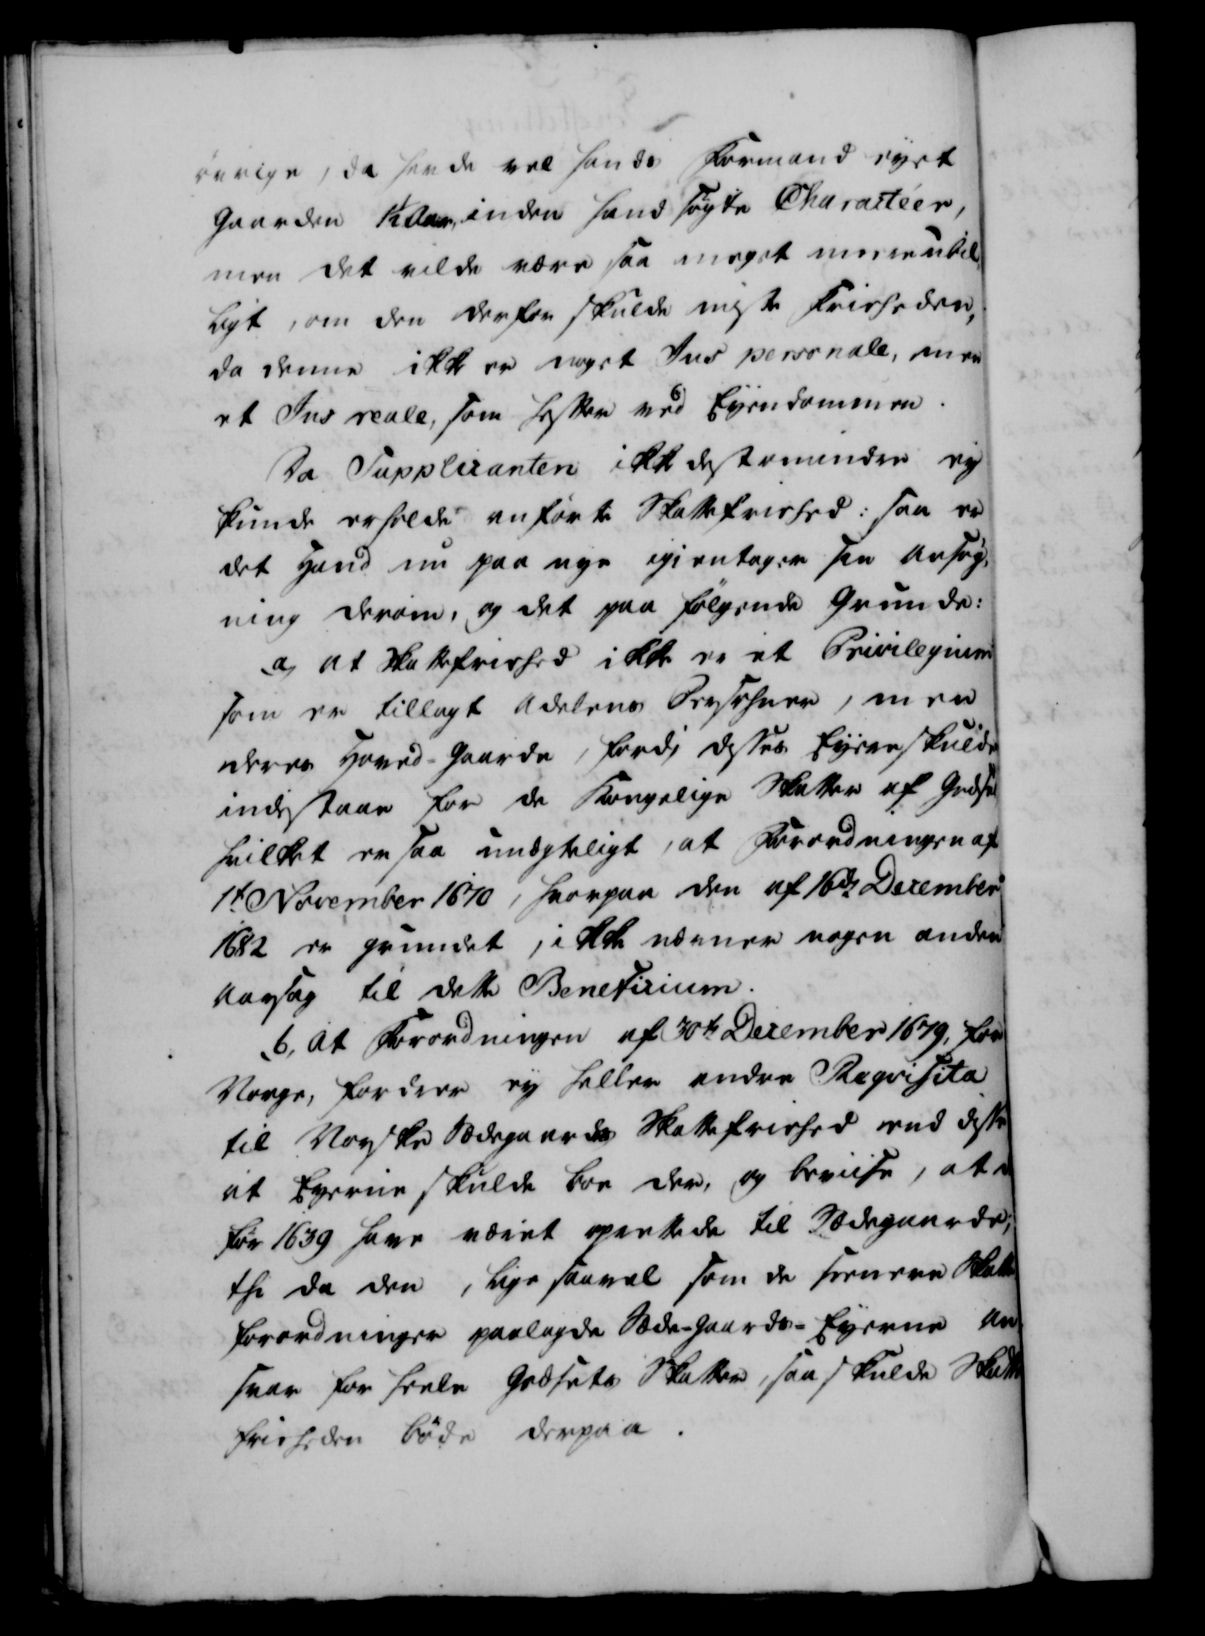 øvrige, da havde vel hands Formand eyet
Gaarden 1/2 Aar, inden hand søgte Charactéer,
men det vilde være saa meget meere ubil,
ligt, om den derfor skulde miste Friheden,
da denne ikke er noget Jus personale, men
et Jus reale, som hefter ved Eyendommen.
Da Supplicanten ikke destomindre ey
kunde erholde anførte Skattefriehed: saa er
det Hand nu paa nye igientager sin Ansøg,
ning derom, og det paa følgende Grunde:
a, at Skattefriehed ikke er et Privilegium
som er tillagt Adelens Persohner, men
deres Hoved-Gaarde, fordi disses Eyere skulde
indestaae for de Kongelige Skatter af Godset
hvilket er saa unægteligt, at Forordningen af
1t November 1670, hvorpaa den af 16de December
1682 er grundet, ikke nævner nogen anden
Aarsag til dette Beneficium.
b, At Forordningen af 30te December 1679, for
Norge, fordrer ey heller andre Reqvisita
til Norske Sædegaards Skattefriehed end disse
at Eyerne skulde boe der, og beviise, at
før 1639 have været oprettede til Sædegaarde;
thi da den, lige saavel som de seenere Skatte
forordninger paalagde Sæde-Gaards-Eyerne An
svar for heele Godsets Skatter, saa skulde Skatte
friheden bøde derpaa.